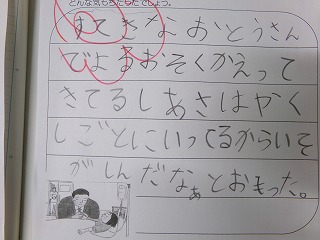 どんな気もちだったでしょう。
すてきなおとうさん
でよるおそくかえって
きてるしあさはやく
しごとにいってるからいそ
がしんだなぁとおもった。